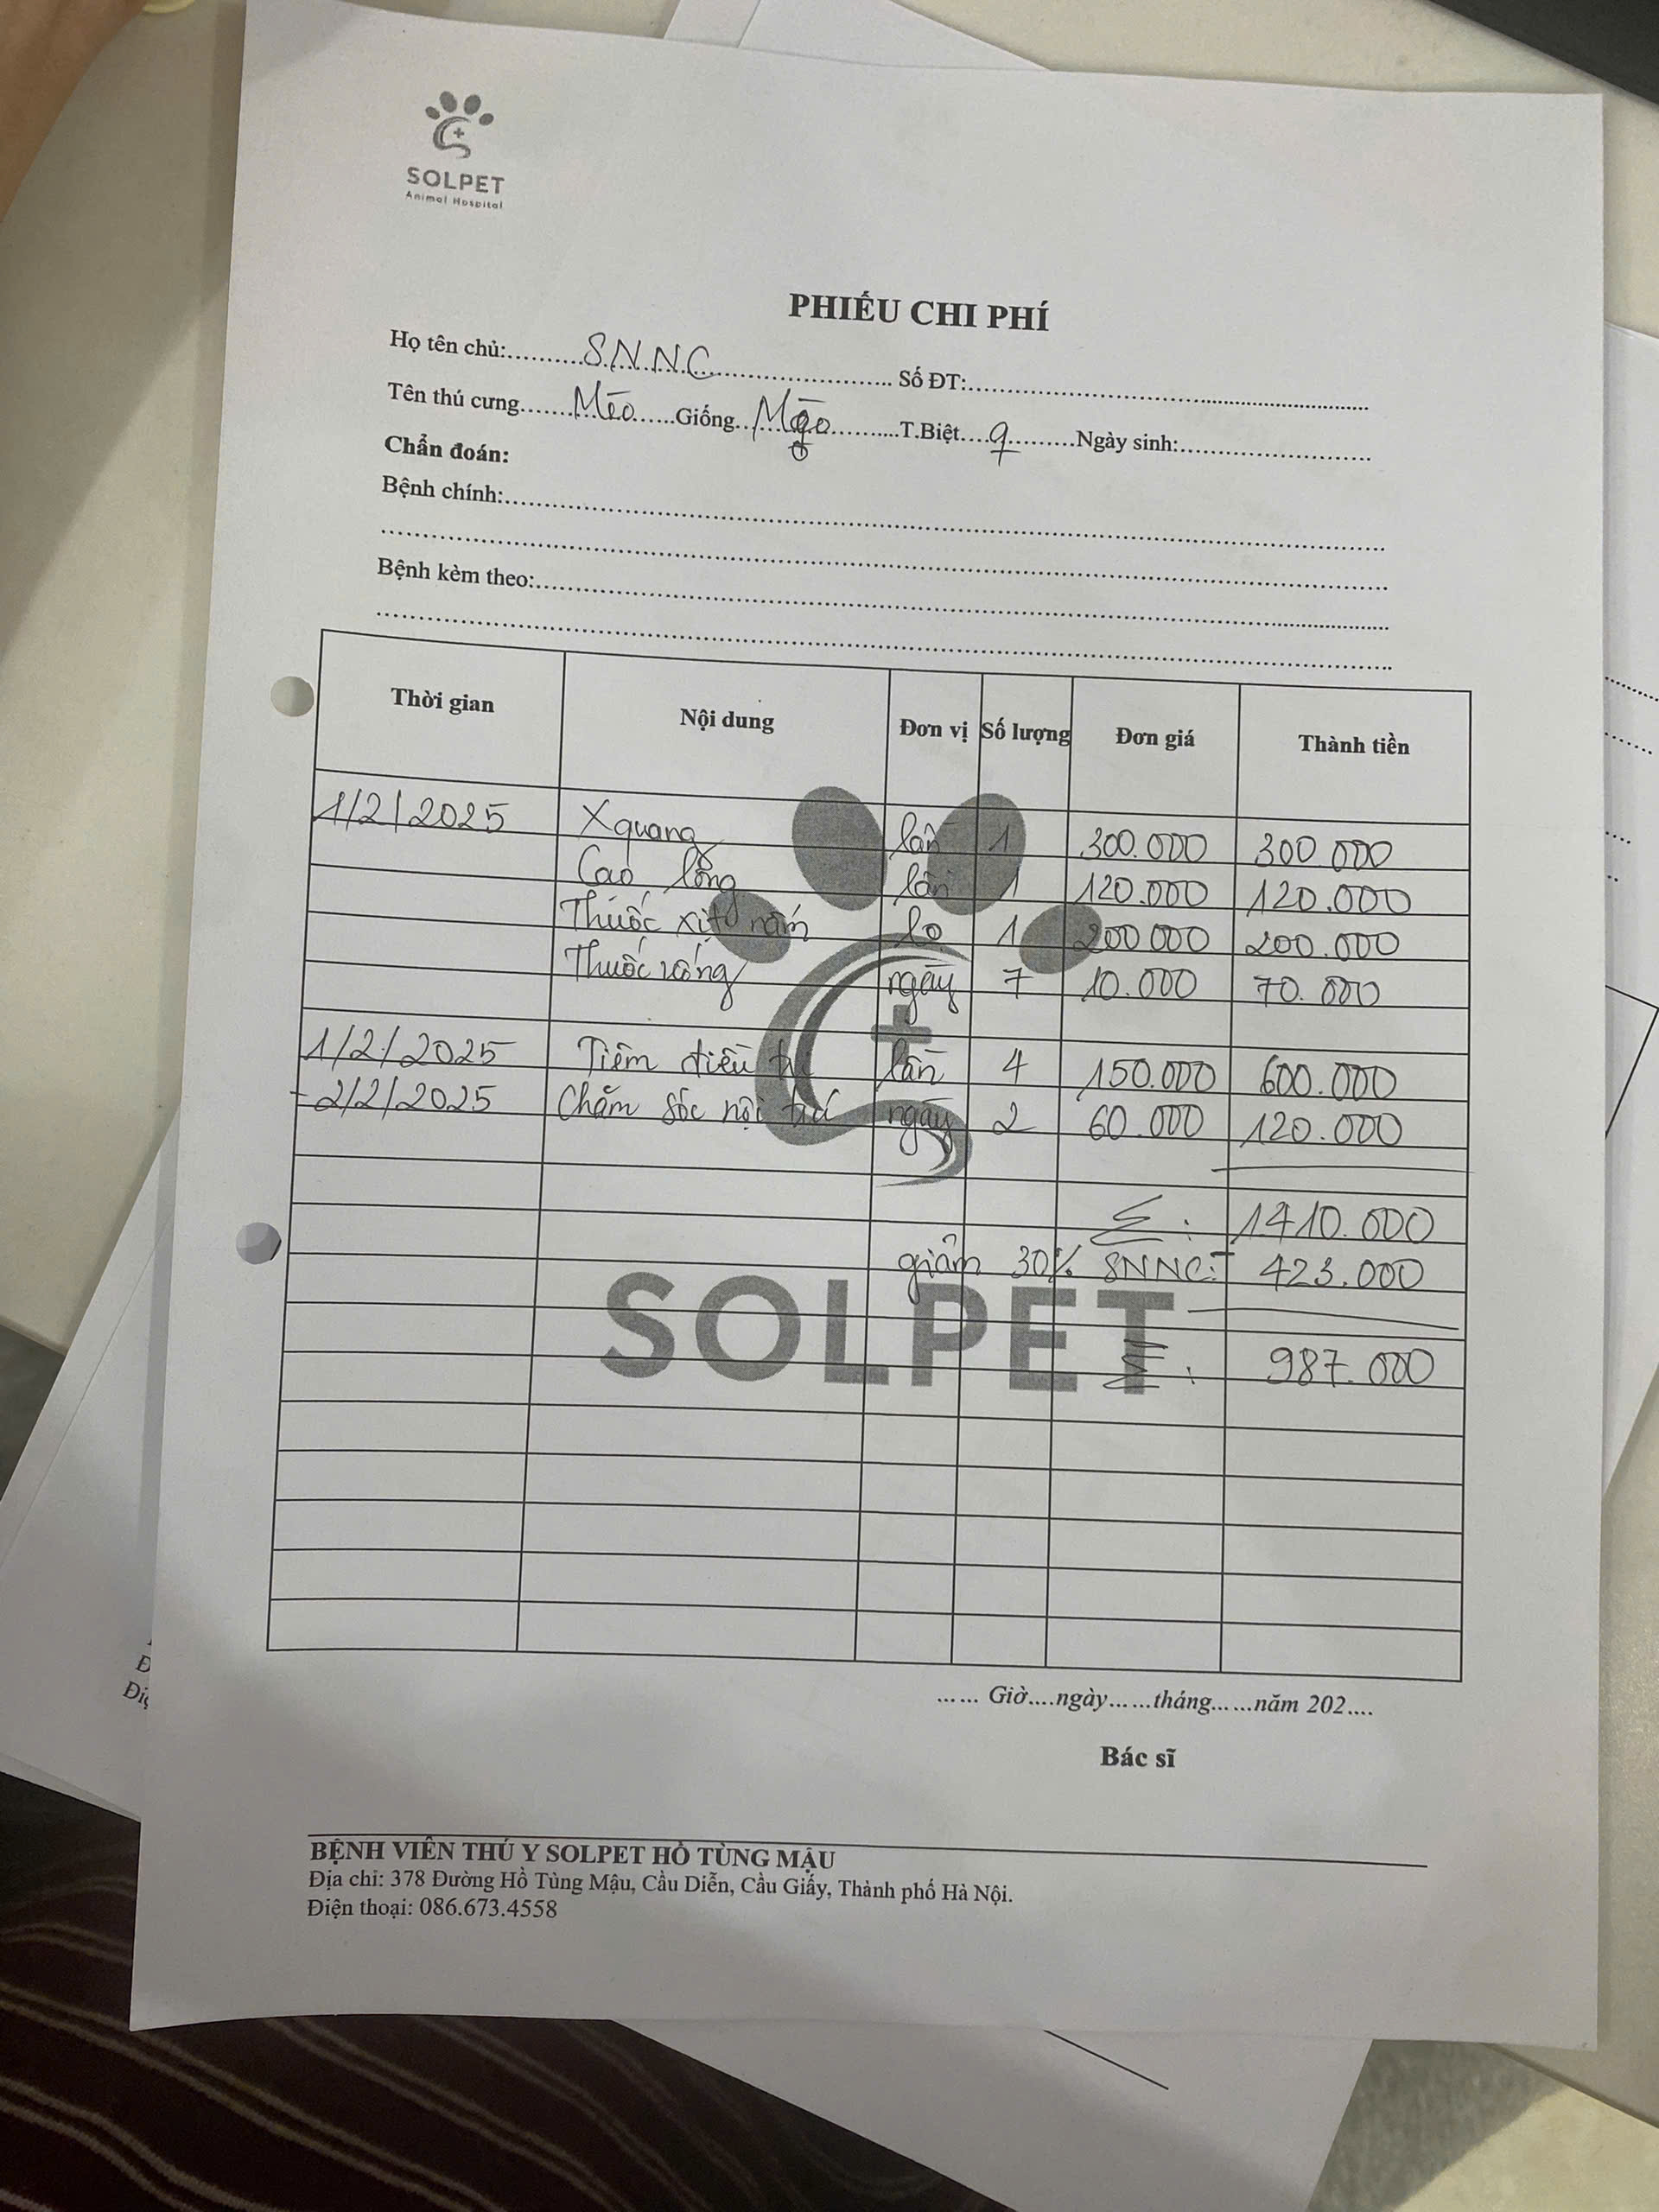 SOLPET
Animal Hospital
PHIẾU CHI PHÍ
Họ tên chủ:..........S.N.N.C........................... Số ĐT:..............................
Tên thú cưng.......Mèo......Giống...Mèo..........T.Biệt....♀.........Ngày sinh:..............................
Chẩn đoán:
Bệnh chính:..............................
Bệnh kèm theo:..............................
Thời gian Nội dung Đơn vị Số lượng Đơn giá Thành tiền
1/2/2025 Xquang lần 1 300.000 300.000
Cạo lông lần 1 120.000 120.000
Thuốc xịt nấm lọ 1 200.000 200.000
Thuốc uống ngày 7 10.000 70.000
1/2/2025 Tiêm điều trị lần 4 150.000 600.000
- 2/2/2025 Chăm sóc nội trú ngày 2 60.000 120.000
Σ: 1.410.000
giảm 30% SNNC: - 423.000
Σ: 987.000
SOLPET
...... Giờ....ngày......tháng......năm 202....
Bác sĩ
BỆNH VIỆN THÚ Y SOLPET HỒ TÙNG MẬU
Địa chỉ: 378 Đường Hồ Tùng Mậu, Cầu Diễn, Cầu Giấy, Thành phố Hà Nội.
Điện thoại: 086.673.4558